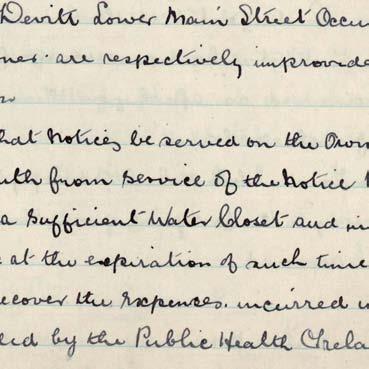 Devitt Lower Main Street Occu
ner are respectively unprovide
n
hat Notices be served on the Own
nth from service of the Notice
a Sufficient Water Closet and in
at the expiration of such time
ecover the Expences incurred
ed by the Public Health Irela